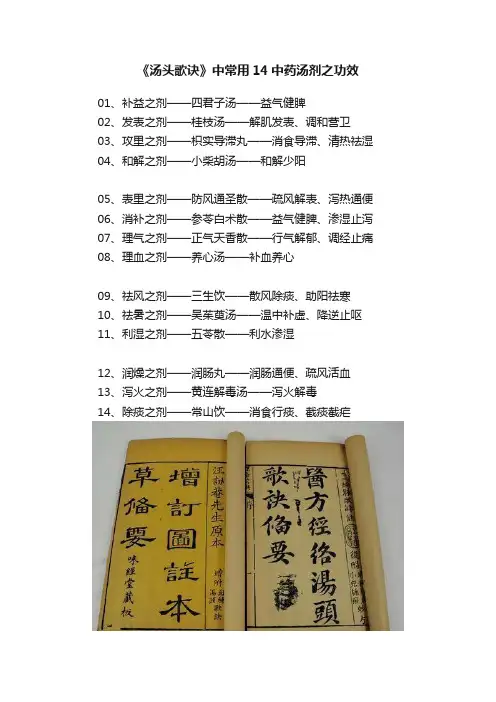 《汤头歌诀》中常用14中药汤剂之功效
01、补益之剂——四君子汤——益气健脾
02、发表之剂——桂枝汤——解肌发表、调和营卫
03、攻里之剂——枳实导滞丸——消食导滞、清热祛湿
04、和解之剂——小柴胡汤——和解少阳
05、表里之剂——防风通圣散——疏风解表、泻热通便
06、消补之剂——参苓白术散——益气健脾、渗湿止泻
07、理气之剂——正气天香散——行气解郁、调经止痛
08、理血之剂——养心汤——补血养心
09、祛风之剂——三生饮——散风除痰、助阳祛寒
10、祛暑之剂——吴茱萸汤——温中补虚、降逆止呕
11、利湿之剂——五苓散——利水渗湿
12、润燥之剂——润肠丸——润肠通便、疏风活血
13、泻火之剂——黄连解毒汤——泻火解毒
14、除痰之剂——常山饮——消食行痰、截痰截疟
醫方經絡湯頭
歌訣備要
汪訒菴先生原本
增訂圖註本
草備要
味經堂藏板